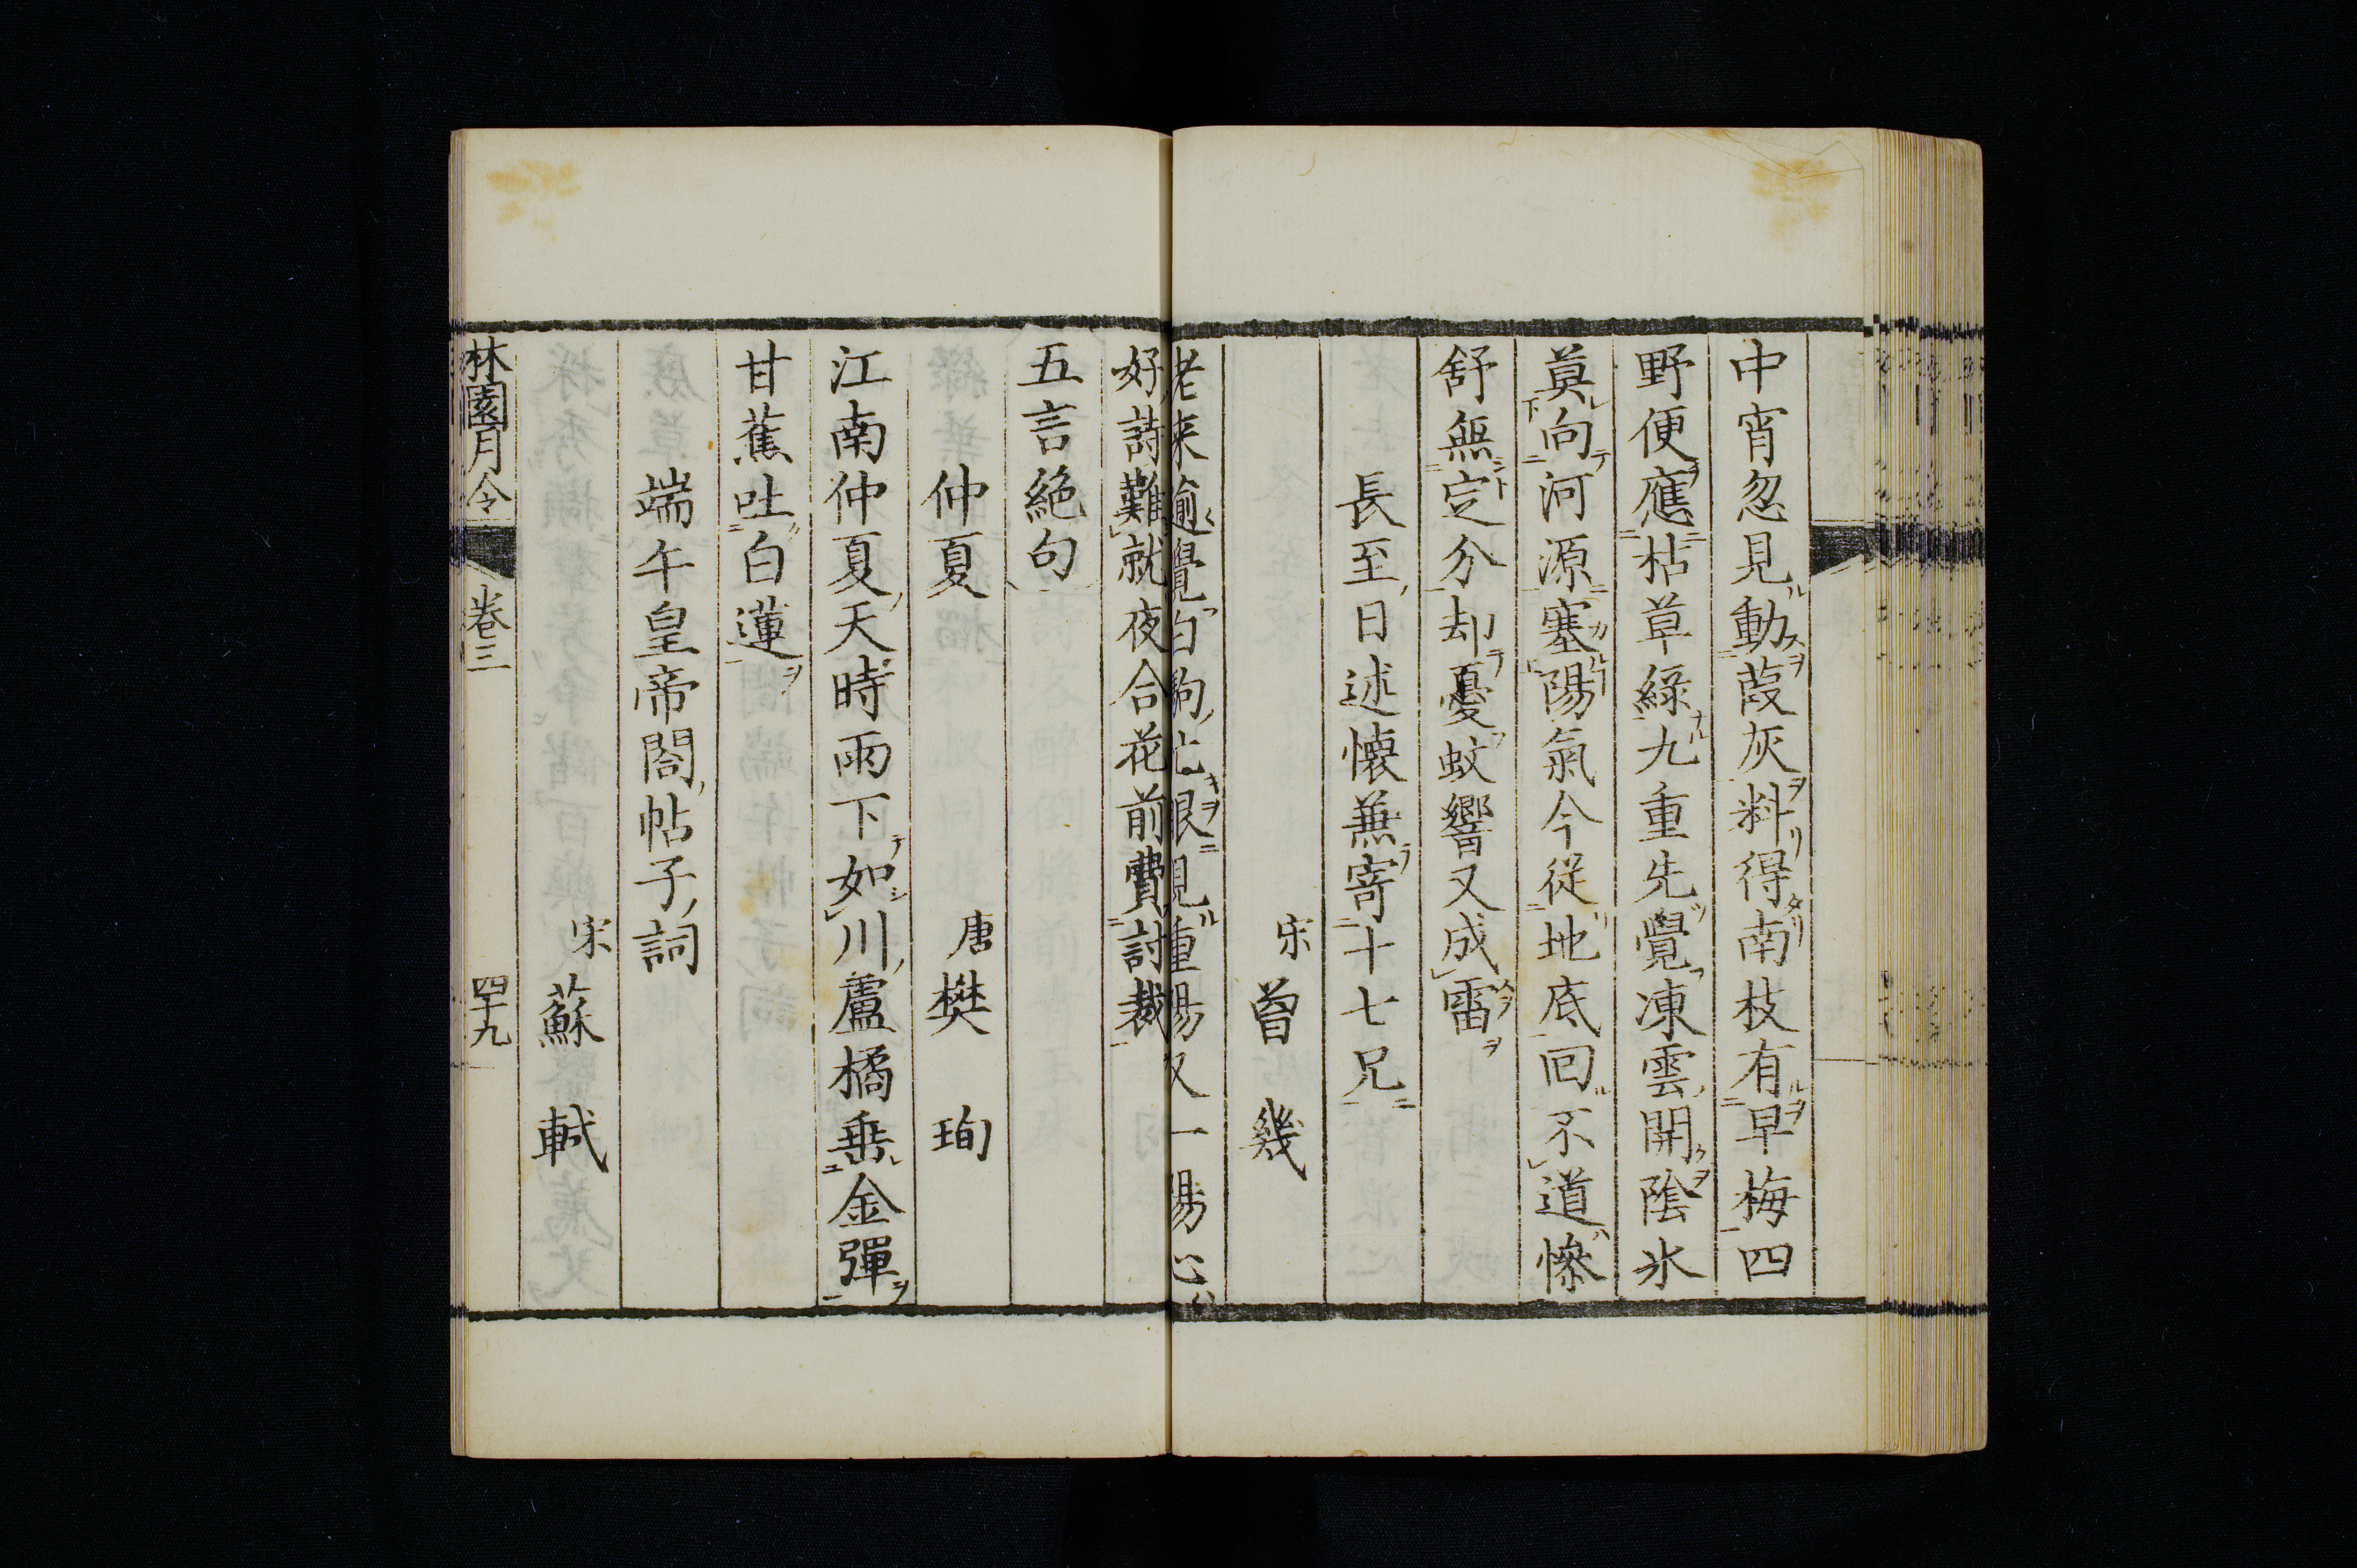 中宵忽見動葭灰料得南枝有早梅四
野便應枯草綠九重先覺凍雲開陰氷
莫向河源塞陽氣今從地底回不道慘
舒無定分却憂蚊響又成雷
長至日述懷兼寄十七兄
宋 曾 幾
老来逾覺白駒忙眼見重陽又一陽
好詩難就夜合花前費討裁
五言絕句
仲夏
唐 樊 珣
江南仲夏天時雨下如川盧橘垂金彈
甘蕉吐白蓮
端午皇帝閤帖子詞
宋 蘇 軾
林園月令 卷三 四十九